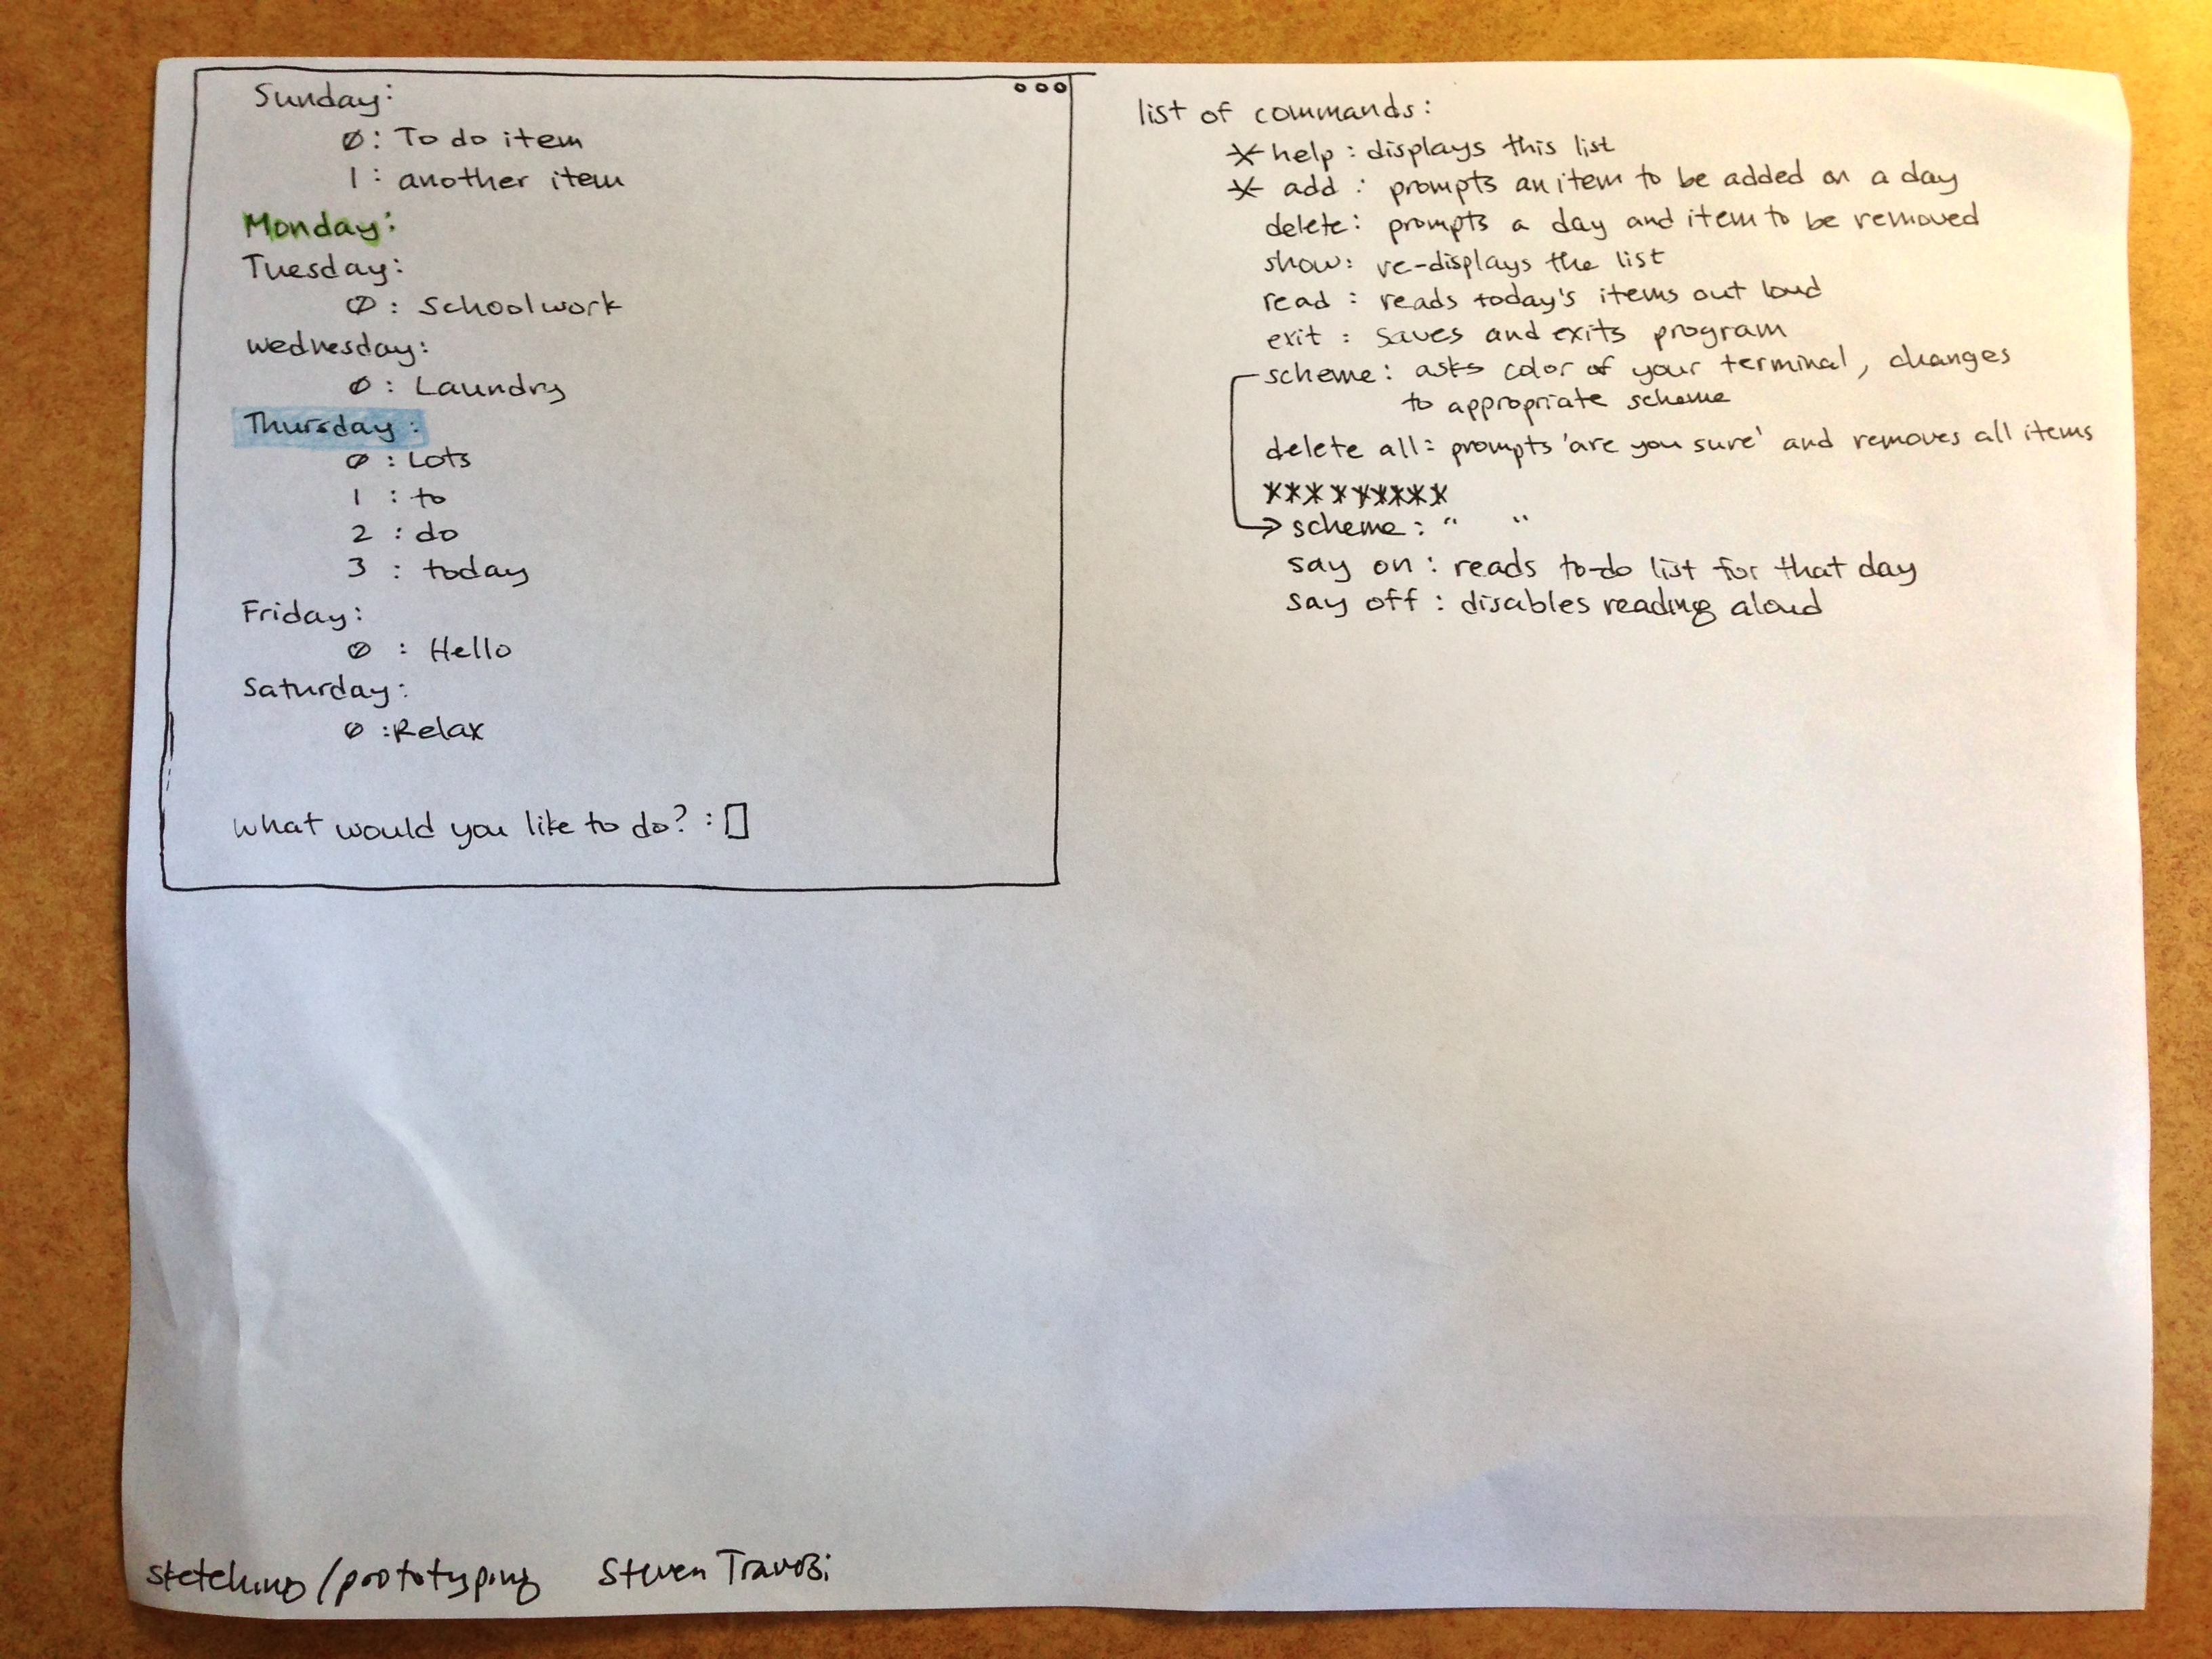 Sunday:
0: To do item
1: another item
Monday:
Tuesday:
0: Schoolwork
Wednesday:
0: Laundry
Thursday:
0: Lots
1: to
2: do
3: today
Friday:
0: Hello
Saturday:
0: Relax
What would you like to do? :
list of commands:
* help: displays this list
* add: prompts an item to be added on a day
delete: prompts a day and item to be removed
show: re-displays the list
read: reads today's items out loud
exit: saves and exits program
scheme: asks color of your terminal, changes
to appropriate scheme
delete all: prompts 'are you sure' and removes all items
*********
→ scheme: " "
say on: reads to-do list for that day
say off: disables reading aloud
sketching/prototyping Steven